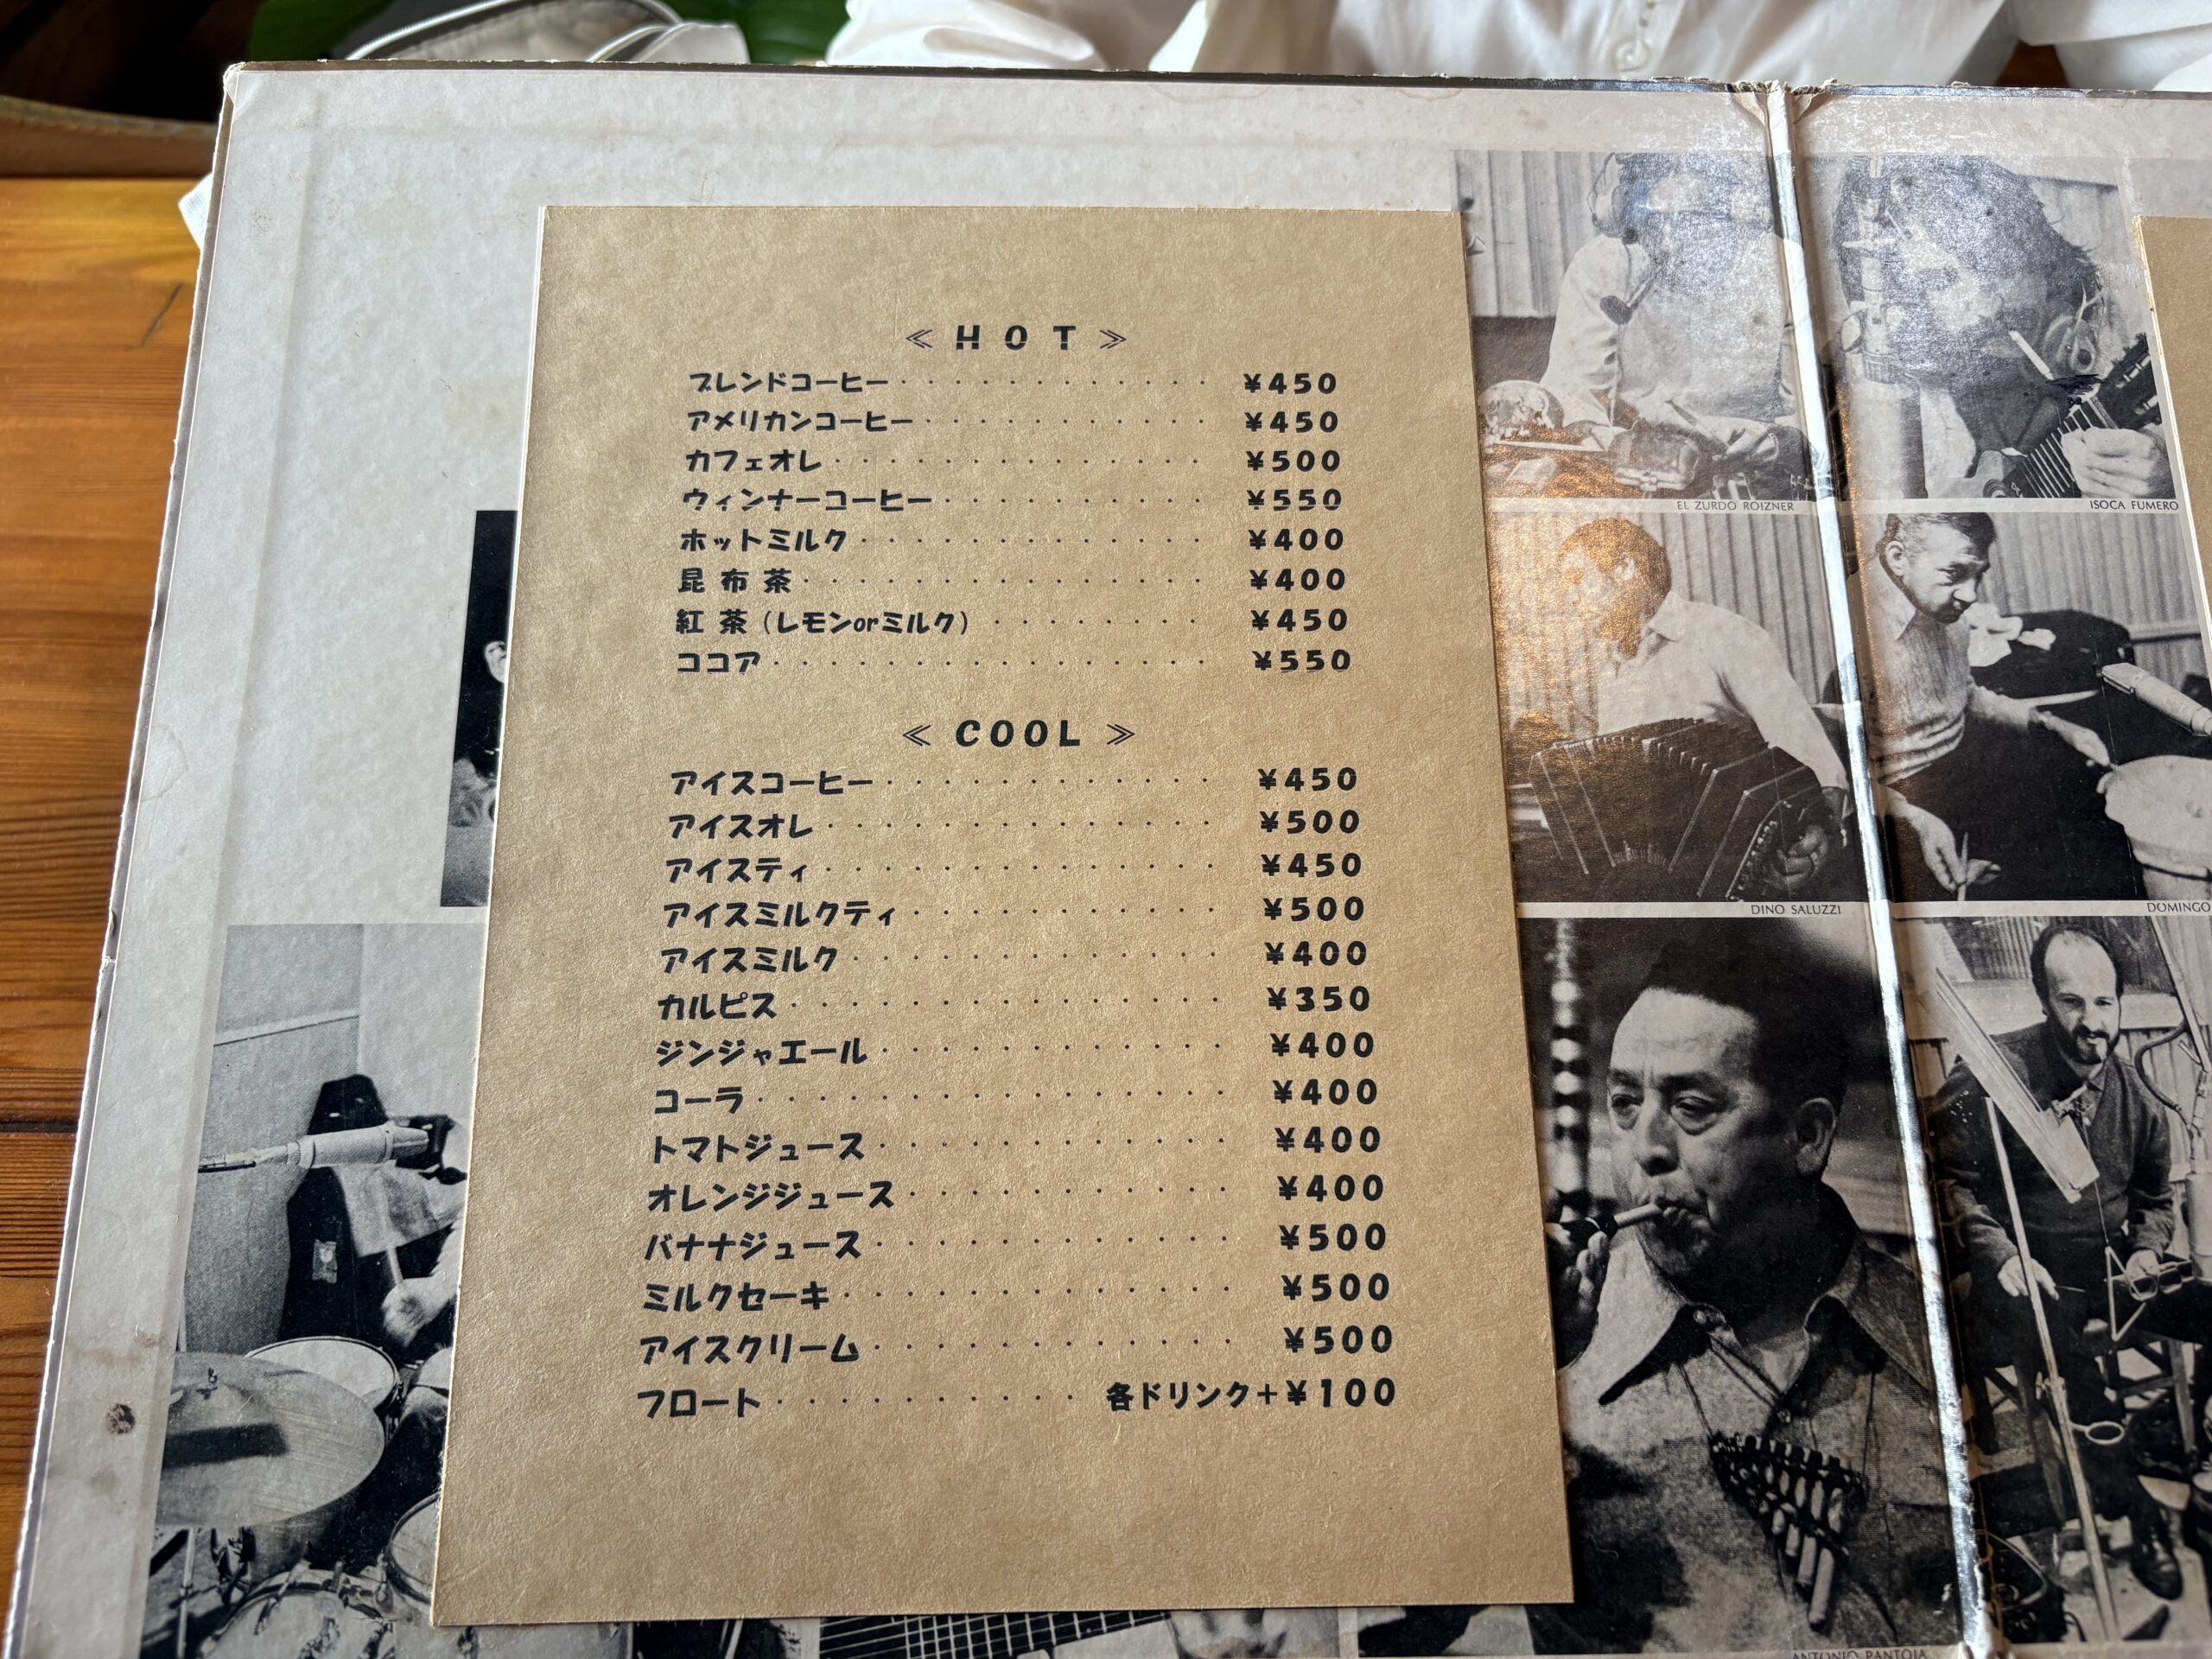 ≪ HOT ≫
ブレンドコーヒー・・・・・・・・・・・・ ¥450
アメリカンコーヒー・・・・・・・・・・・ ¥450
カフェオレ・・・・・・・・・・・・・・ ¥500
ウィンナーコーヒー・・・・・・・・・・ ¥550
ホットミルク・・・・・・・・・・・・・ ¥400
昆布茶・・・・・・・・・・・・・・・ ¥400
紅茶（レモンorミルク）・・・・・・・・ ¥450
ココア・・・・・・・・・・・・・・・・ ¥550
≪ COOL ≫
アイスコーヒー・・・・・・・・・・・・ ¥450
アイスオレ・・・・・・・・・・・・・・ ¥500
アイスティ・・・・・・・・・・・・・・ ¥450
アイスミルクティ・・・・・・・・・・・ ¥500
アイスミルク・・・・・・・・・・・・・ ¥400
カルピス・・・・・・・・・・・・・・・ ¥350
ジンジャエール・・・・・・・・・・・・ ¥400
コーラ・・・・・・・・・・・・・・・・ ¥400
トマトジュース・・・・・・・・・・・・ ¥400
オレンジジュース・・・・・・・・・・・ ¥400
バナナジュース・・・・・・・・・・・・ ¥500
ミルクセーキ・・・・・・・・・・・・・ ¥500
アイスクリーム・・・・・・・・・・・・ ¥500
フロート・・・・・・・・・・・ 各ドリンク＋¥100
EL ZURDO ROIZNER
ISOCA FUMERO
DINO SALUZZI
DOMINGO
ANTONIO PANTOJA